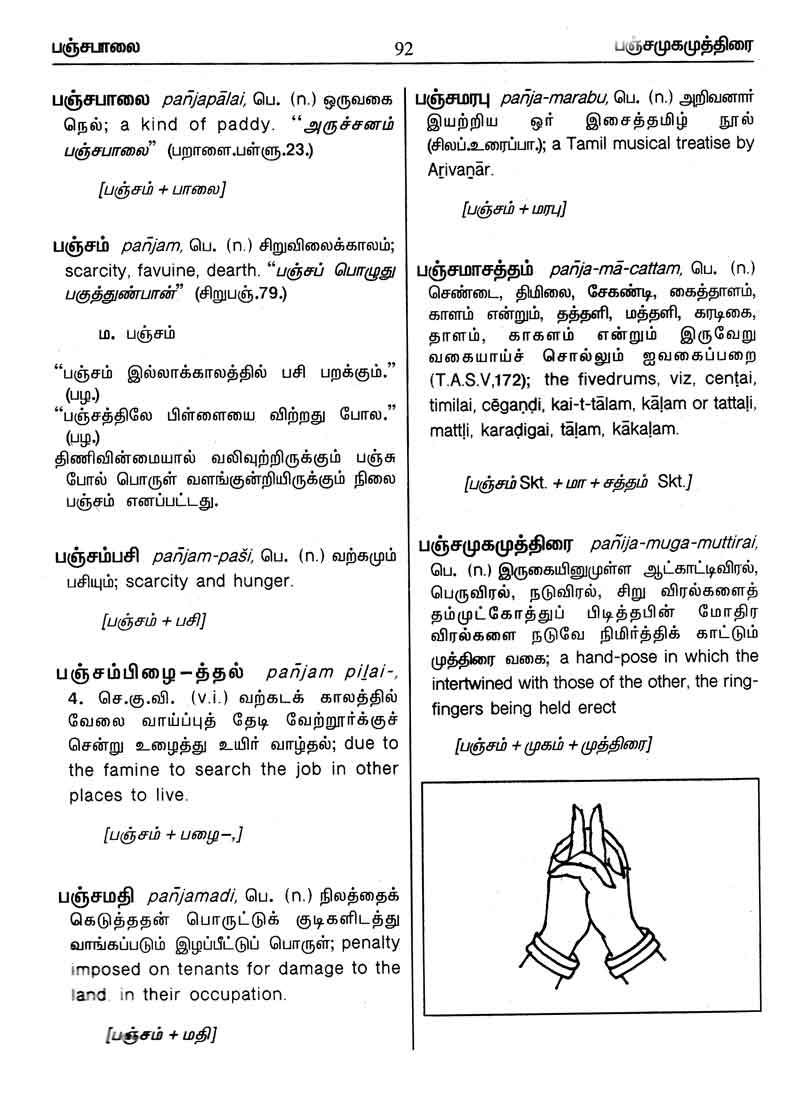 பஞ்சபாலை
92
பஞ்சமுகமுத்திரை
பஞ்சபாலை pañjapālai, பெ. (n.) ஒருவகை
நெல்; a kind of paddy. “அருச்சனம்
பஞ்சபாலை” (பறாளை.பள்ளு.23.)
[பஞ்சம் + பாலை]
பஞ்சம் pañjam, பெ. (n.) சிறுவிலைக்காலம்;
scarcity, favuine, dearth. “பஞ்சப் பொழுது
பகுத்துண்பான்” (சிறுபஞ்.79.)
ம. பஞ்சம்
“பஞ்சம் இல்லாக்காலத்தில் பசி பறக்கும்.”
(பழ.)
“பஞ்சத்திலே பிள்ளையை விற்றது போல.”
(பழ.)
திணிவின்மையால் வலிவுற்றிருக்கும் பஞ்சு
போல் பொருள் வளங்குன்றியிருக்கும் நிலை
பஞ்சம் எனப்பட்டது.
பஞ்சம்பசி pañjam-paši, பெ. (n.) வற்கமும்
பசியும்; scarcity and hunger.
[பஞ்சம் + பசி]
பஞ்சம்பிழை–த்தல் pañjam piḻai-,
4. செ.கு.வி. (v.i.) வற்கடக் காலத்தில்
வேலை வாய்ப்புத் தேடி வேற்றூர்க்குச்
சென்று உழைத்து உயிர் வாழ்தல்; due to
the famine to search the job in other
places to live.
[பஞ்சம் + பழை–,]
பஞ்சமதி pañjamadi, பெ. (n.) நிலத்தைக்
கெடுத்ததன் பொருட்டுக் குடிகளிடத்து
வாங்கப்படும் இழப்பீட்டுப் பொருள்; penalty
imposed on tenants for damage to the
land in their occupation.
[பஞ்சம் + மதி]
பஞ்சமரபு pañja-marabu, பெ. (n.) அறிவனார்
இயற்றிய ஓர் இசைத்தமிழ் நூல்
(சிலப்.உரைப்பா.); a Tamil musical treatise by
Aṟivaṉār.
[பஞ்சம் + மரபு]
பஞ்சமாசத்தம் pañja-mā-cattam, பெ. (n.)
செண்டை, திமிலை, சேகண்டி, கைத்தாளம்,
காளம் என்றும், தத்தளி, மத்தளி, கரடிகை,
தாளம், காகளம் என்றும் இருவேறு
வகையாய்ச் சொல்லும் ஐவகைப்பறை
(T.A.S.V,172); the fivedrums, viz, ceṇṭai,
timilai, cēgaṇḍi, kai-t-tāḷam, kāḷam or tattaḷi,
mattḷi, karaḍigai, tāḷam, kākaḷam.
[பஞ்சம் Skt. + மா + சத்தம் Skt.]
பஞ்சமுகமுத்திரை pañija-muga-muttirai,
பெ. (n.) இருகையினுமுள்ள ஆட்காட்டிவிரல்,
பெருவிரல், நடுவிரல், சிறு விரல்களைத்
தம்முட்கோத்துப் பிடித்தபின் மோதிர
விரல்களை நடுவே நிமிர்த்திக் காட்டும்
முத்திரை வகை; a hand-pose in which the
intertwined with those of the other, the ring-
fingers being held erect
[பஞ்சம் + முகம் + முத்திரை]